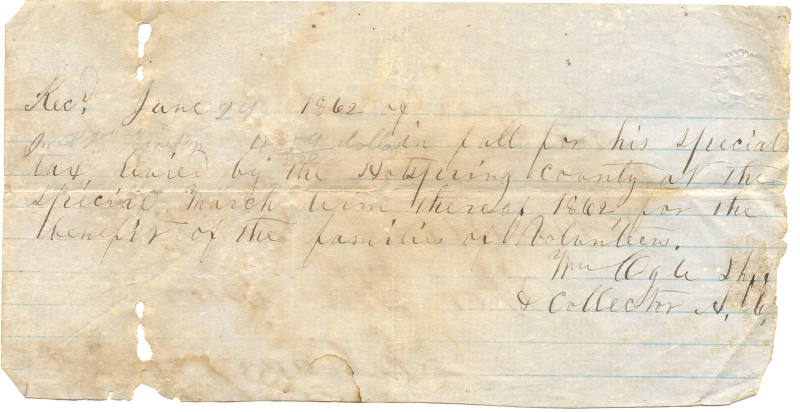 Recd, June 29 1862 of
4 59/100 dollars in full for his special
tax, levied by the Hotspring County at the
Special March term thereof 1862 for the
benefit of the families of Volunteers.
Wm Ogle Shff
& Collector H. C.